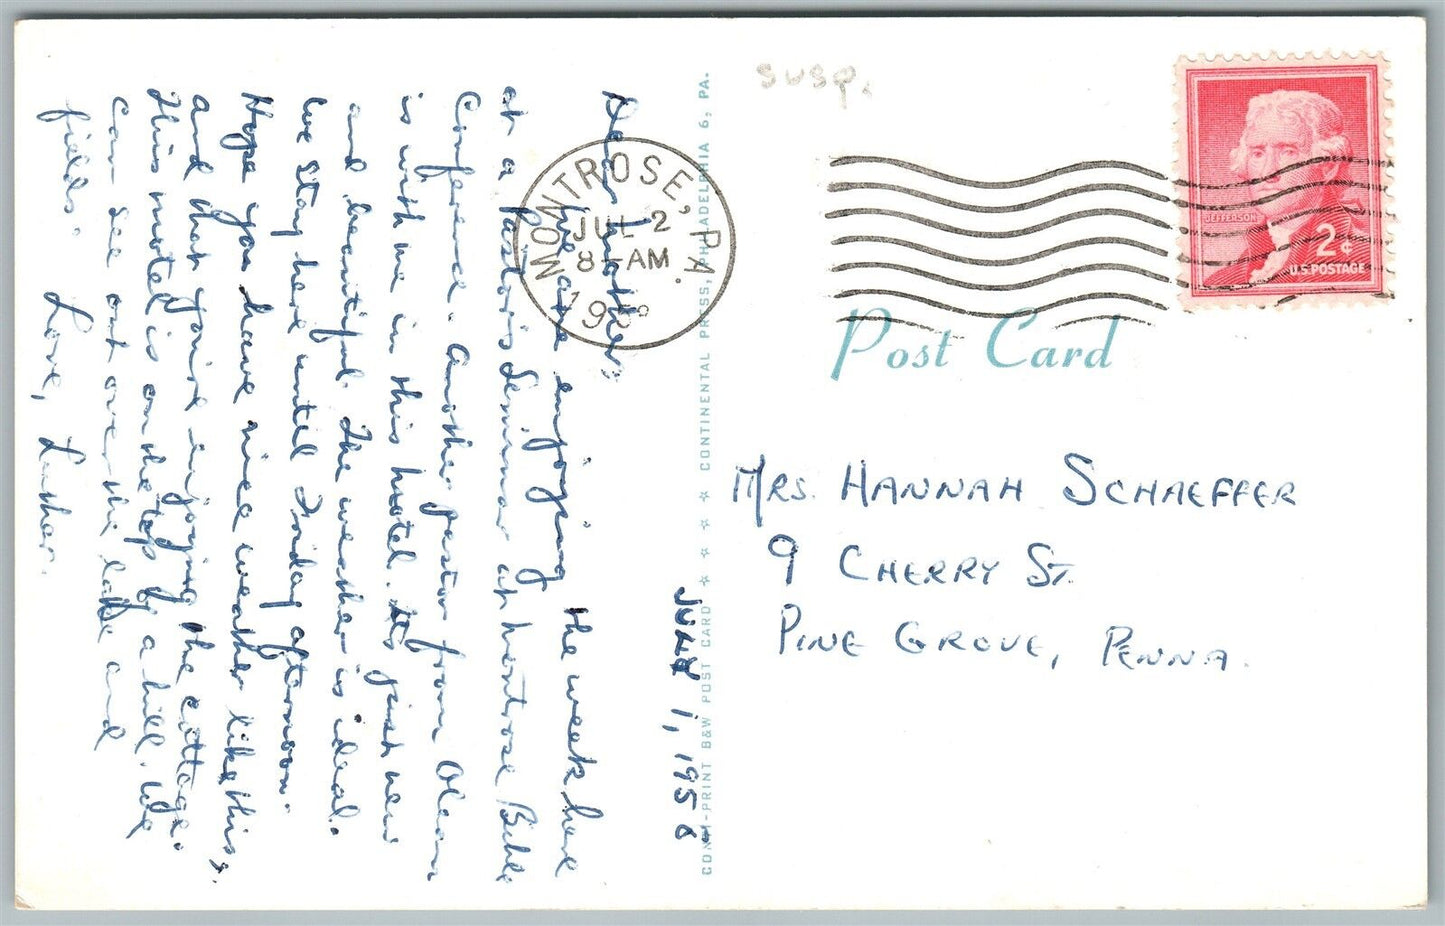 JUNE 1, 1958
Dear Mother,
We are enjoying the week here
at a Pastor's Seminar at Montrose Bible
Conference. Another pastor from Olean
is with me in this hotel. It's just new
and beautiful. The weather is ideal.
We stay here until Friday afternoon.
Hope you have nice weather like this,
and that you're enjoying the cottage.
This motel is on the top of a hill. We
can see out over the lake and
fields.
Love, Luther.
CONTI-PRINT B&W POST CARD ☆ ☆ ☆ ☆ CONTINENTAL PRESS, PHILADELPHIA 6, PA.
susp.
MONTROSE, PA.
JUL 2
8-AM
195
JEFFERSON
2¢
U.S. POSTAGE
Post Card
MRS. HANNAH SCHAEFFER
9 CHERRY ST.
PINE GROVE, PENNA.